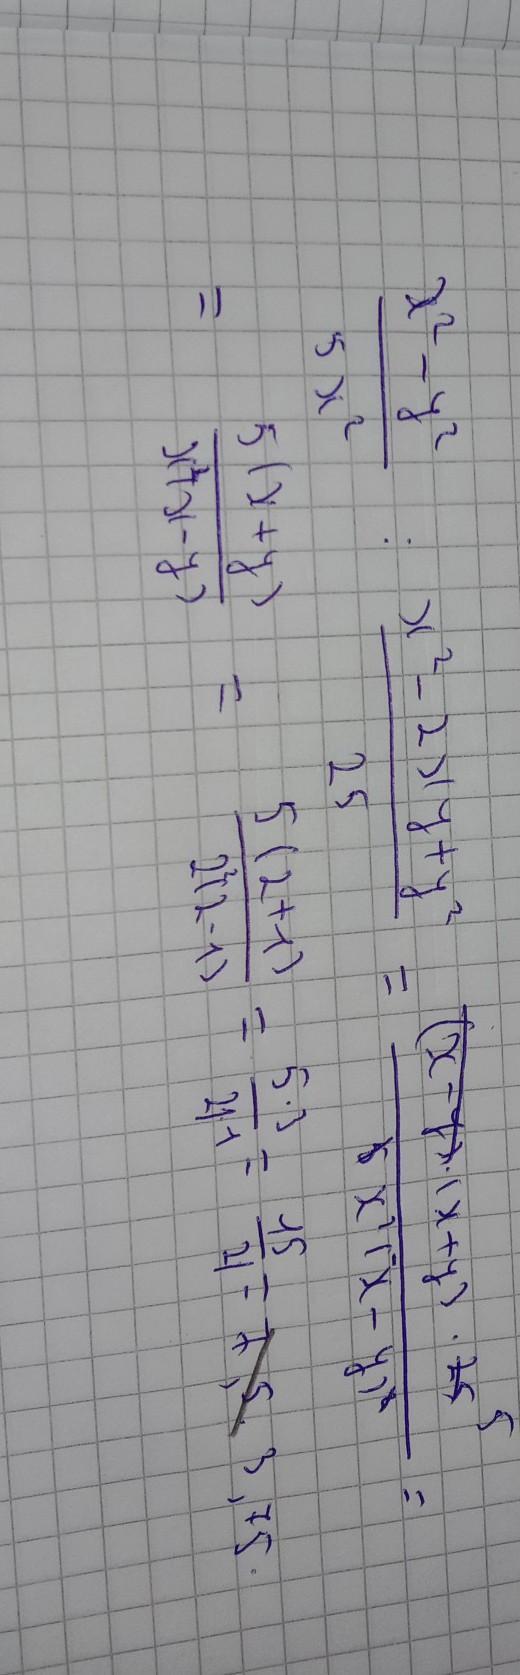 x² - y² / 5x² : x² - 2xy + y² / 25 = (x - y)·(x + y) · 25 5 / 5x²(x - y)² =
= 5(x + y) / x²(x - y) = 5(2 + 1) / 2²(2 - 1) = 5·3 / 4·1 = 15 / 4 = 7,5 3,75.